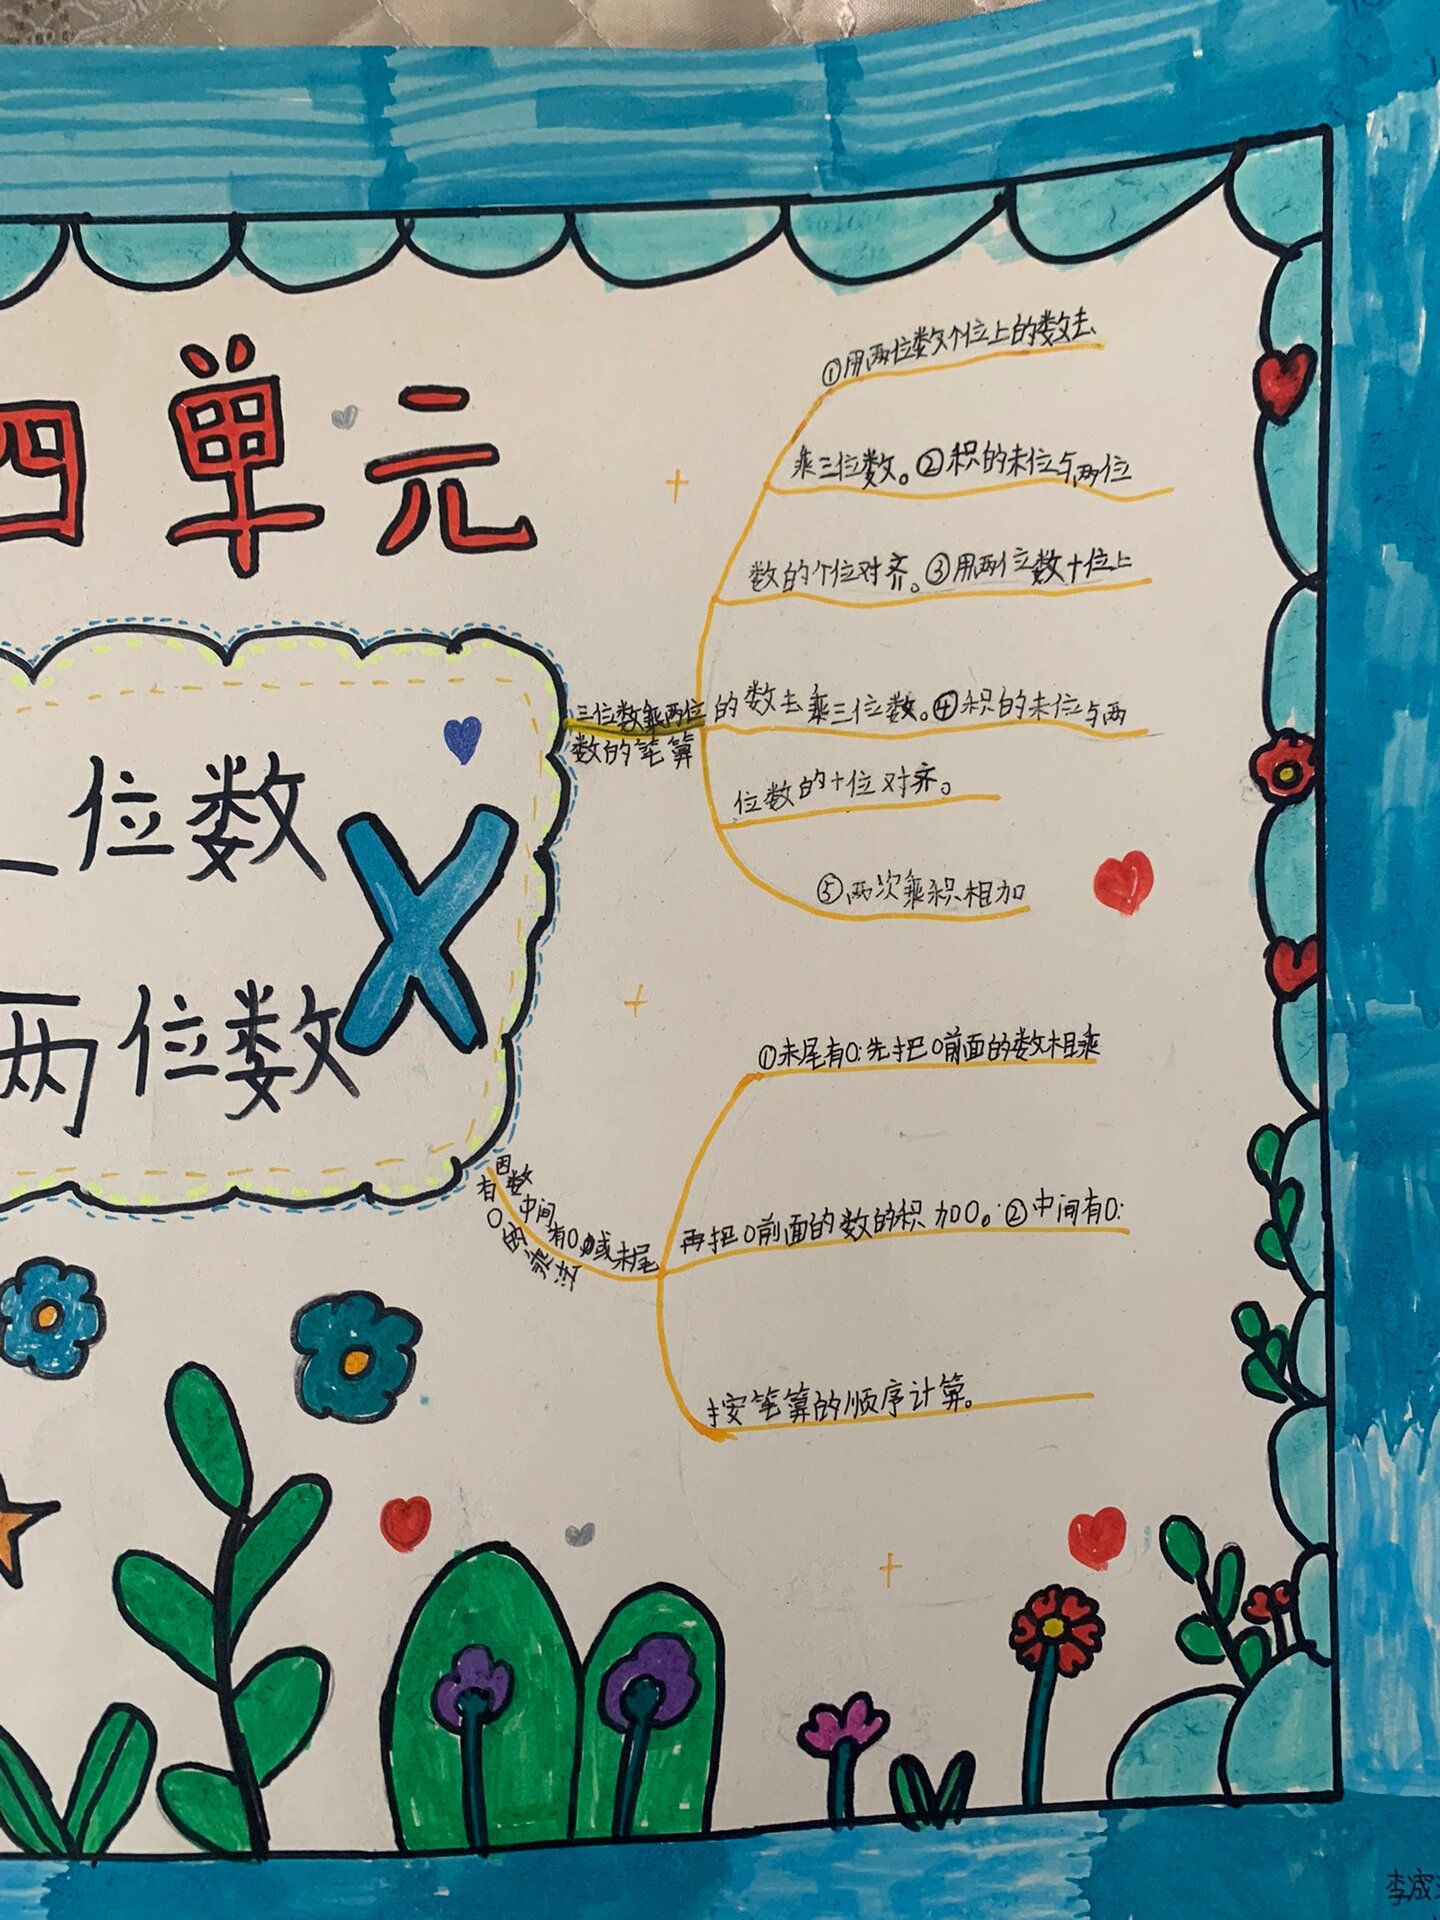 四单元
三位数
X
两位数
三位数乘两位
数的笔算
①用两位数个位上的数去
乘三位数。②积的末位与两位
数的个位对齐。③用两位数十位上
的数去乘三位数。④积的末位与两
位数的十位对齐。
⑤两次乘积相加
因数中间有0或末尾
有0的乘法
①末尾有0:先把0前面的数相乘
再把0前面的数的积加0。②中间有0:
按笔算的顺序计算。
李